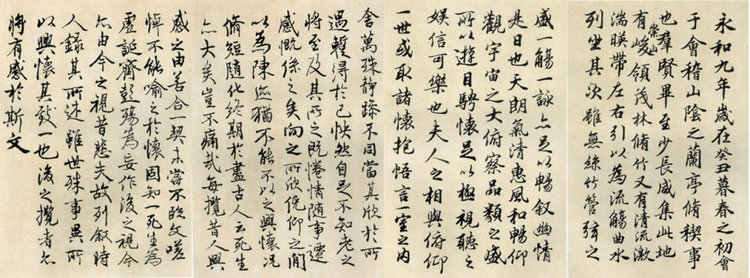 永和九年歲在癸丑暮春之初會
于會稽山陰之蘭亭脩稧事
也羣賢畢至少長咸集此地
有崇山峻領茂林脩竹又有清流激
湍暎帶左右引以為流觴曲水
列坐其次雖無絲竹管弦之
盛一觴一詠亦足以暢叙幽情
是日也天朗氣清惠風和暢仰
觀宇宙之大俯察品類之盛
所以遊目騁懷足以極視聽之
娛信可樂也夫人之相與俯仰
一世或取諸懷抱悟言一室之內
舍萬殊靜躁不同當其欣於所
遇蹔得於己怏然自足不知老之
將至及其所之既惓情隨事遷
感慨係之矣向之所欣俛仰之間
以為陳迹猶不能不以之興懷況
脩短隨化終期於盡古人云死生
亦大矣豈不痛哉每攬昔人興
感之由若合一契未嘗不臨文嗟
悼不能喻之於懷固知一死生為
虛誕齊彭殤為妄作後之視今
亦由今之視昔悲夫故列叙時
人錄其所述雖世殊事異所
以興懷其致一也後之攬者亦
將有感於斯文